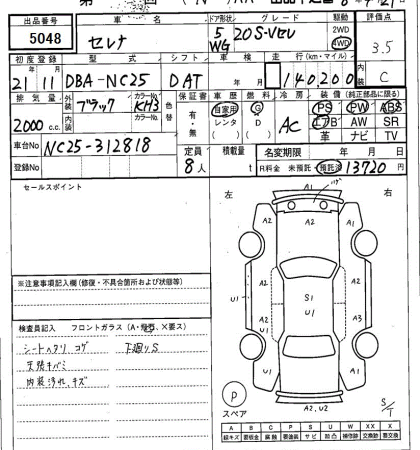 出品番号 車 名 ドア形状 グレード 駆動 評価点
5048 セレナ 5 WG 20S-Vセレ 2WD 4WD 3.5
初度登録 型式 シフト 車検 走行(km・マイル) 内装
21年 11月 DBA-NC25 DAT 年 月 140200 C
排気量 外装 カラーNo. 色替 保証書 車歴 燃料 冷房 装備(純正部品に限る)
2000 c.c. ブラック KH3 有・無 自家用 レンタ G D AC PS PW ABS
内装 カラーNo. エアB AW SR
革 ナビ TV
車台No NC25-312818 定員 積載量 名変期限 年 月 日
登録No 8人 t R料金 未預託 預託済 13720 円
セールスポイント
左 右
※注意事項記入欄(修復・不具合箇所および状態等)
検査員記入 フロントガラス(A・飛石、X要ス)
シートヘタリ コゲ 下廻りS
天張キバミ
内装汚れ、キズ
A1
A2 A2 A2
U1 A2 U1 S1 A3
A2 A2
U1
A2 U1
A2、U2
P
スペア S/T
A B C P S U W X XX X
線キズ 要板金 腐蝕 要塗装 サビ 凹凸 補修跡 交換跡 要交換